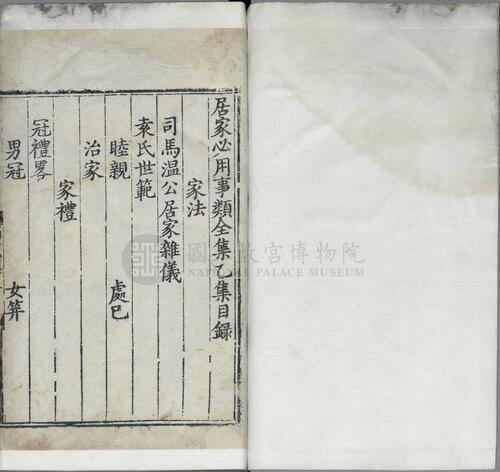 居家必用事類全集乙集目録
家法
司馬温公居家雜儀
袁氏世範
睦親　處已
治家
家禮
冠禮畧
男冠　女筓
國立故宮博物院
NATIONAL PALACE MUSEUM